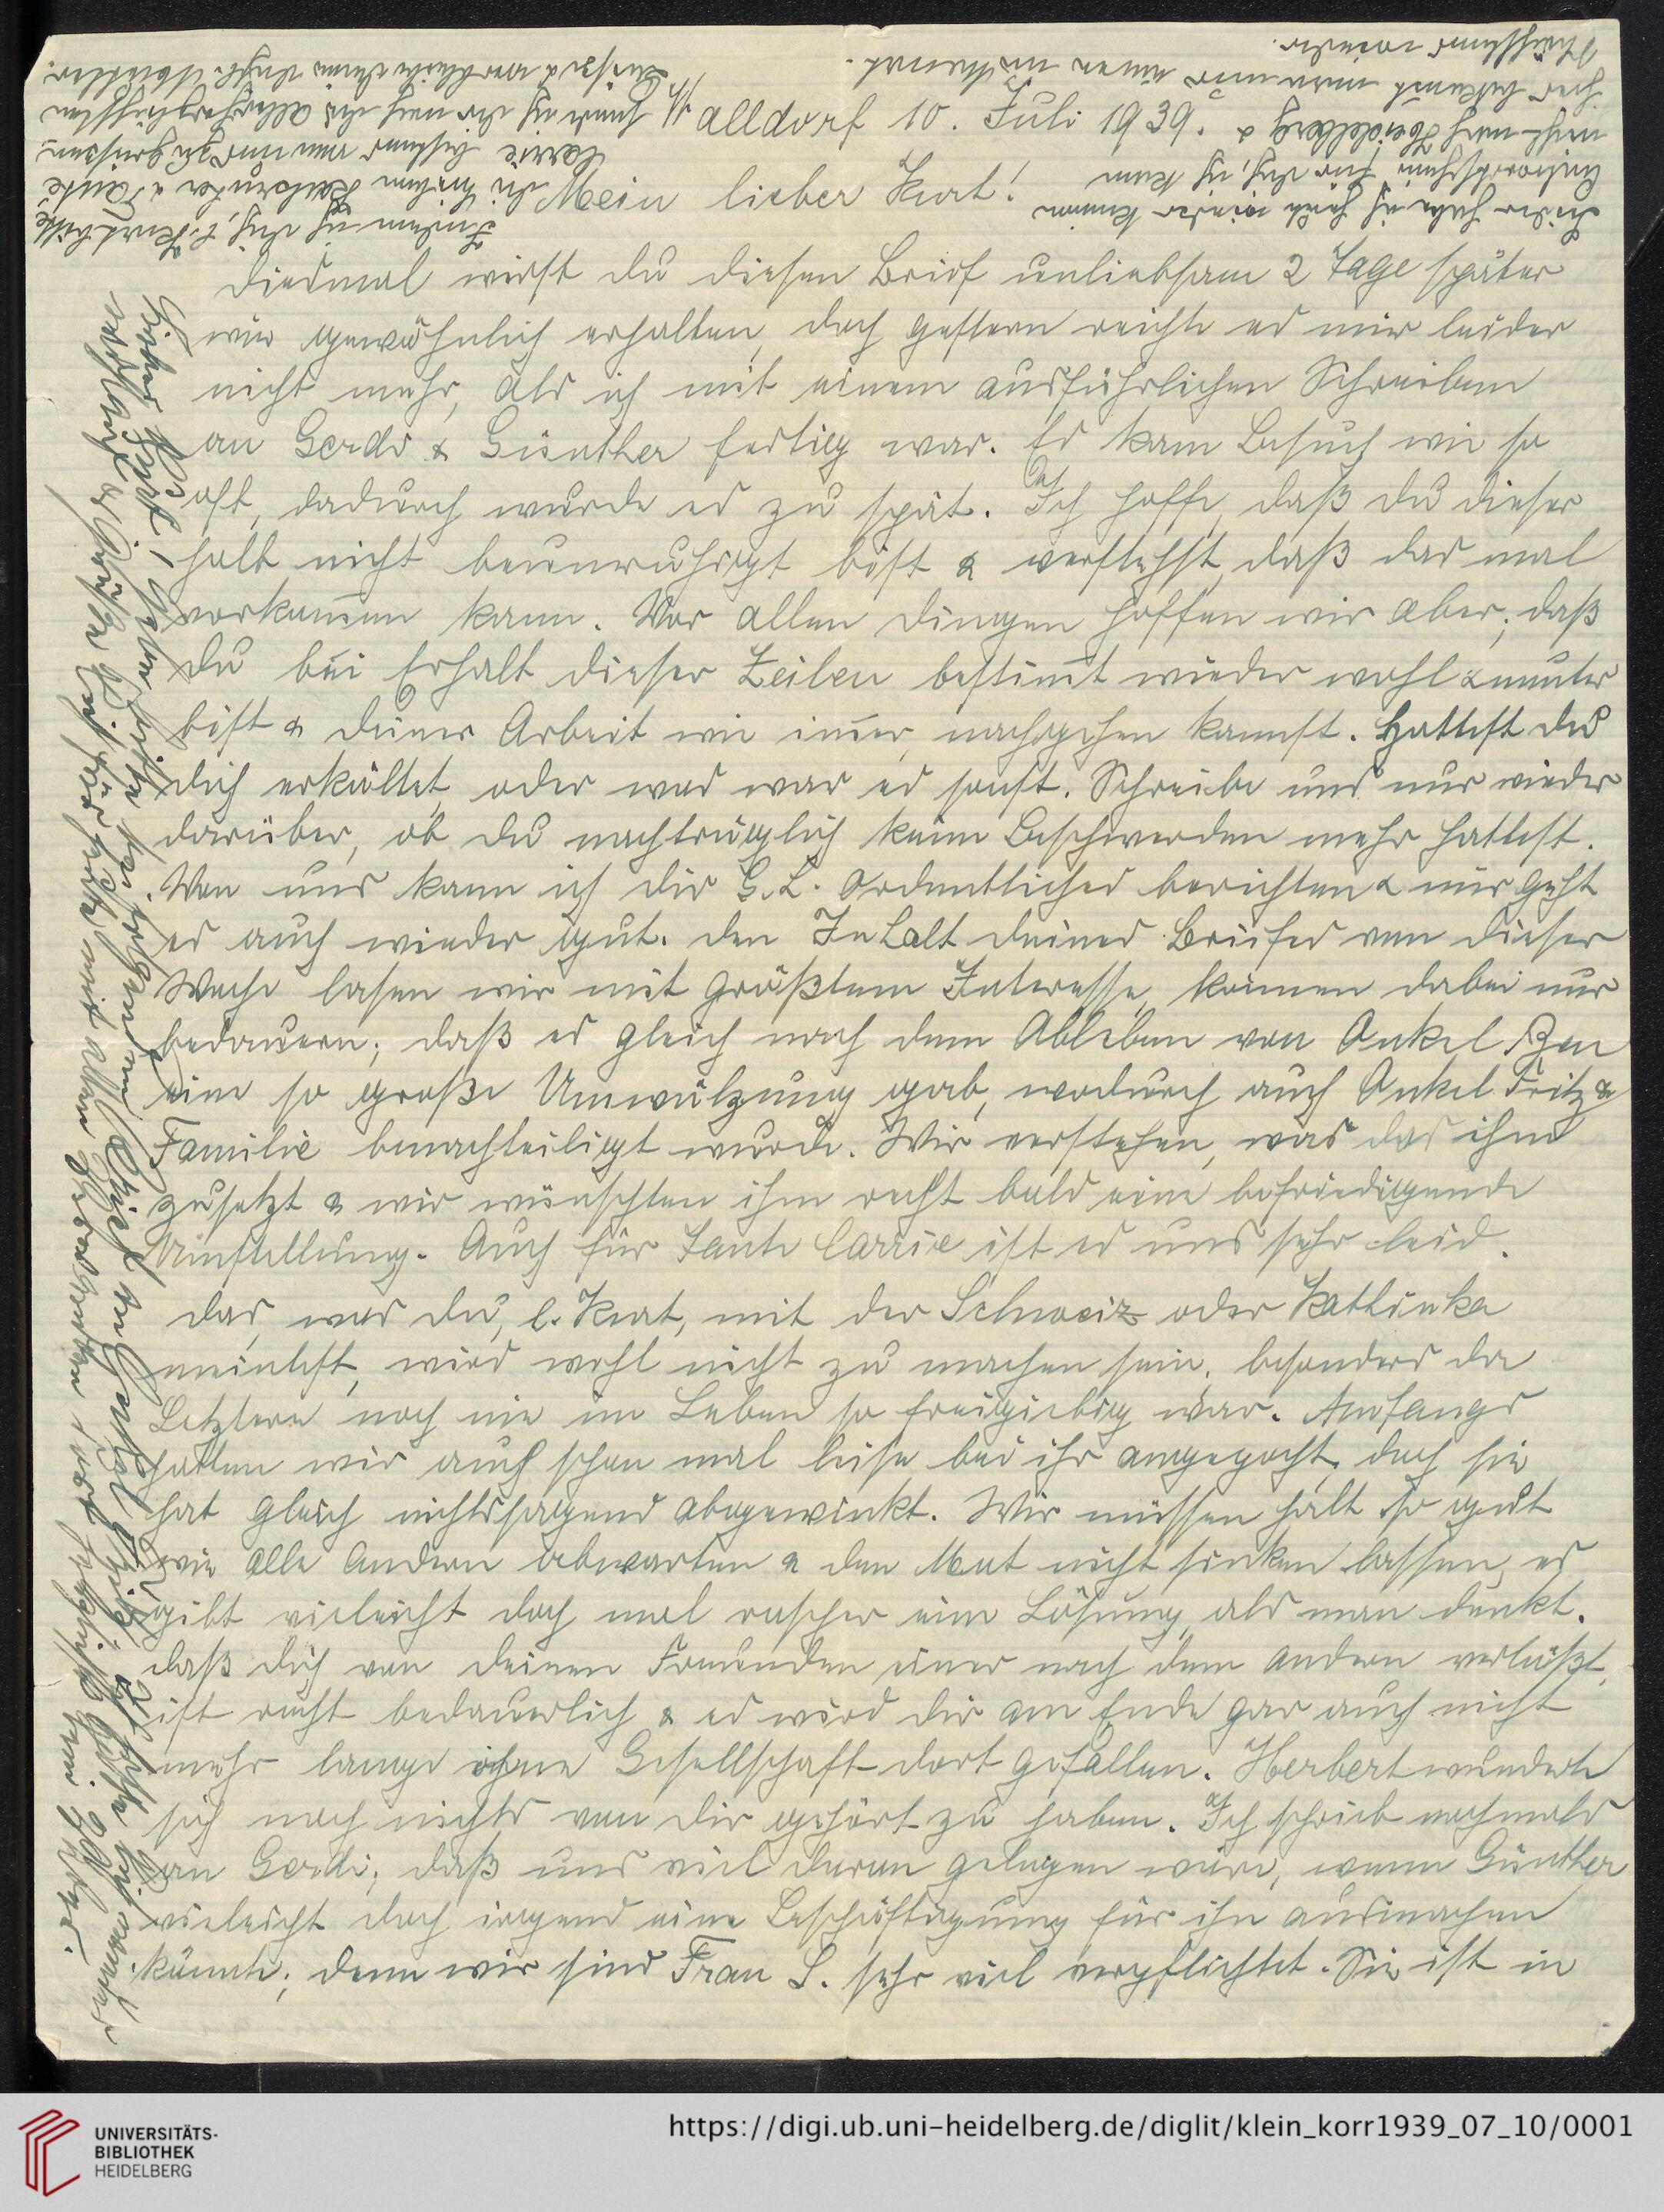 Walldorf 10. Juli 1939.
Mein lieber Kurt!
Diesmal wirst du diesen Brief unliebsam 2 Tage später
wie gewöhnlich erhalten, doch gestern reichte es mir leider
nicht mehr, als ich mit einem ausführlichen Schreiben
an Gerdi & Günther fertig war. Es kam Besuch wie so
oft, dadurch wurde es zu spät. Ich hoffe, daß du dieser
halb nicht beunruhigt bist & verstehst, daß das mal
vorkommen kann. Vor allen Dingen hoffen wir aber, daß
du bei Erhalt dieser Zeilen bestimmt wieder wohl & munter
bist & deiner Arbeit wie immer, nachgehen kannst. Hattest du
dich erkältet, oder was war es sonst. Schreibe uns nur wieder
darüber, ob du nachträglich keine Beschwerden mehr hattest.
Von uns kann ich dir G. L. ordentliches berichten & mir geht
es auch wieder gut. Den Inhalt deines Briefes von dieser
Woche lasen wir mit größtem Interesse, können dabei nur
bedauern, daß es gleich nach dem Ableben von Onkel Ben
eine so große Umwälzung gab, wodurch auch Onkel Fritz &
Familie benachteiligt wurde. Wir verstehen, was das ihm
zusetzt & wir wünschten ihm recht bald eine befriedigende
Einstellung. Auch für Tante Carrie ist es uns sehr leid.
Das, was du, l. Kurt, mit der Schweiz oder Kathinka
meintest, wird wohl nicht zu machen sein, besonders da
Letztere noch nie im Leben so freigiebig war. Anfangs
hatten wir auch schon mal leise bei ihr angepocht, doch sie
hat gleich nichtssagend abgewinkt. Wir müssen halt so gut
wie alle Andern abwarten & den Mut nicht sinken lassen, es
gibt vieleicht doch mal rascher eine Lösung, als man denkt.
Daß dich von deinen Freunden einer nach dem andern verläßt,
ist recht bedauerlich & es wird dir am Ende gar auch nicht
mehr lange ohne Gesellschaft dort gefallen. Herbert wunderte
sich noch nichts von dir gehört zu haben. Ich schrieb nochmals
an Gerdi, daß uns viel daran gelegen wäre, wenn Günther
vieleicht doch irgend eine Beschäftigung für ihn ausmachen
könnte, denn wir sind Frau L. sehr viel verpflichtet. Sie ist in
Leider habe ich heute wieder keinen
Antwortschein für dich, ich kann
nicht nach Heidelberg &
hier bekommt man nur einen im Monat.
Nächstens wieder.
Indem ich dich, l. Kurt bitte
die lieben & Tante
Carrie bestens von uns zu grüssen
sende ich dir noch die allerherzlichsten
Grüsse & verbleibe deine dichl. Mutter.
UNIVERSITÄTS-
BIBLIOTHEK
HEIDELBERG
https://digi.ub.uni-heidelberg.de/diglit/klein_korr1939_07_10/0001